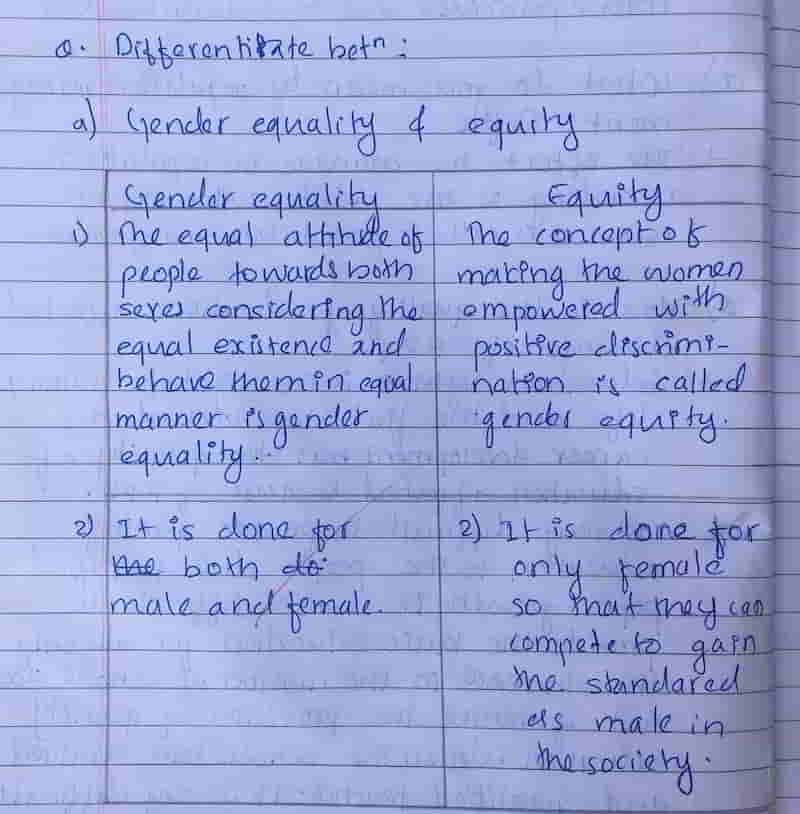 Q. Differentiate betn :
a) Gender equality & equity
Gender equality
1) The equal attitude of
people towards both
sexes considering the
equal existence and
behave them in equal
manner is gender
equality.
Equity
The concept of
making the women
empowered with
positive discrimi-
nation is called
gender equity.
2) It is done for
the both do
male and female.
2) It is done for
only female
so that they can
compete to gain
the standared
as male in
the society.